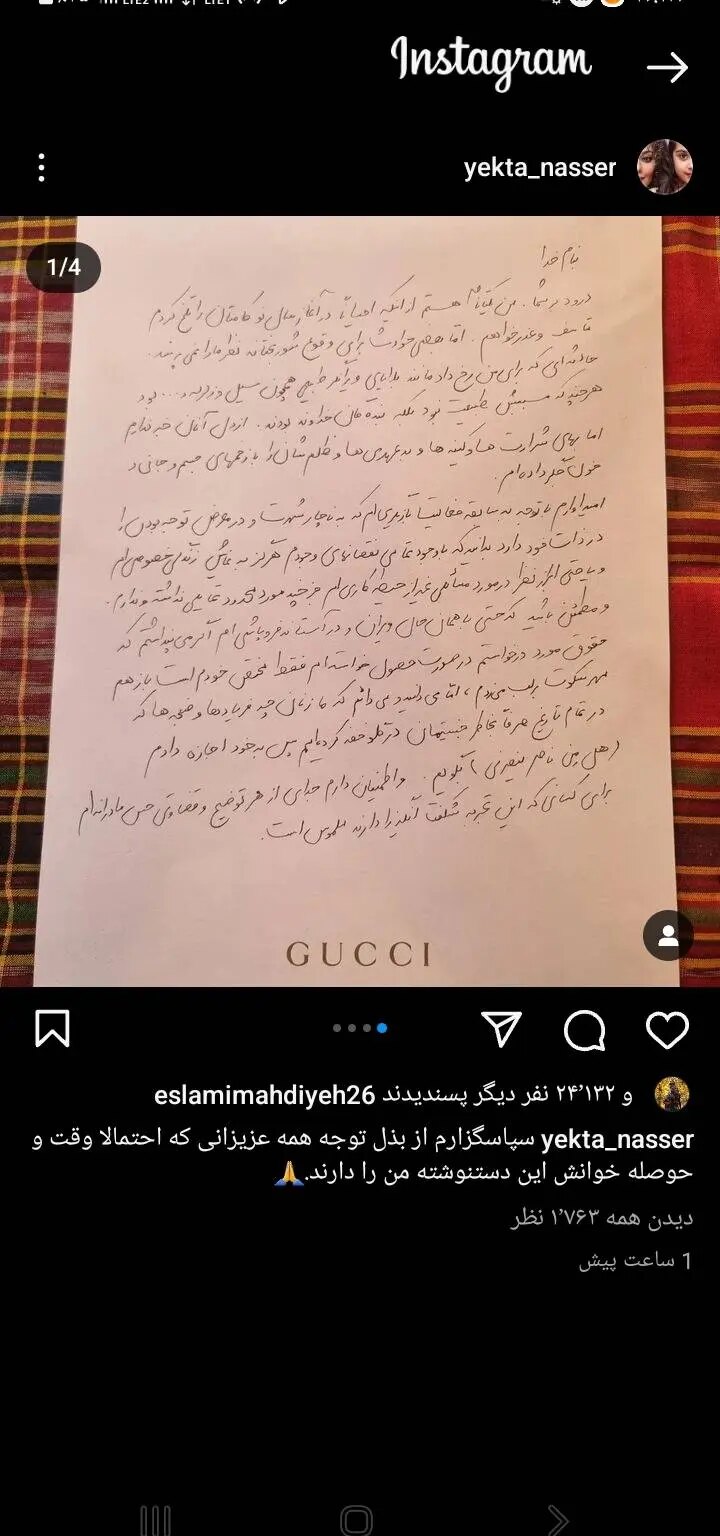 Instagram
yekta_nasser
1/4
بنام خدا
درود بر شما. من یکتا هستم از اینکه احیاناً در آغاز سال نو کامتان را تلخ کردم
متاسف و عذرخواهم. اما بعضی حوادث برای وقوع شوربختانه نظر ما را نمی پرسند.
حادثه ای که برای من رخ داد مانند بلایای ویرانگر طبیعی همچون سیل و زلزله و .... بود
هرچند که مسببش طبیعت نبود بلکه بندگان خداوند بودند. از دل آنان خبر ندارم
اما بهای شرارت ها و کینه ها و بدعهدی ها و ظلم شان را با زخمهای جسم و جانی و
خون جگر داده ام.
امیدوارم با توجه به سابقه فعالیت بازیگری ام که به ناچار شهرت و در معرض توجه بودن را
در ذات خود دارد بدانید که با وجود تمامی نقصانهای وجودم هرگز به نمایش زندگی خصوصی ام
و یا حتی ابراز نظر در مورد مسائلی غیر از حیطه کاری ام جز چند مورد محدود تمایلی نداشته و ندارم.
و مطمئن باشید که حتی با همان حال ویران و در آستانه فروپاشی ام اگر می پنداشتم که
حقوق مورد درخواستم در صورت حصول خواسته ام فقط مختص خودم است باز هم
مهر سکوت بر لب می زدم، اما می دانید و می دانم که ما زنان چه فریادها و ضجه ها که
در تمام تاریخ صرفاً بخاطر جنسیتمان در گلو خفه کرده ایم پس به خود اجازه دادم
(هل من ناصر ینصرنی) بگویم. و اطمینان دارم جدای از هر توضیح و قضاوتی حس مادرانه ام
برای کسانی که این تجربه شگفت انگیز را دارند ملموس است.
GUCCI
eslamimahdiyeh26 و ۲۴٬۱۳۲ نفر دیگر پسندیدند
yekta_nasser سپاسگزارم از بذل توجه همه عزیزانی که احتمالا وقت و
حوصله خوانش این دستنوشته من را دارند.🙏
دیدن همه ۱٬۷۶۳ نظر
1 ساعت پیش